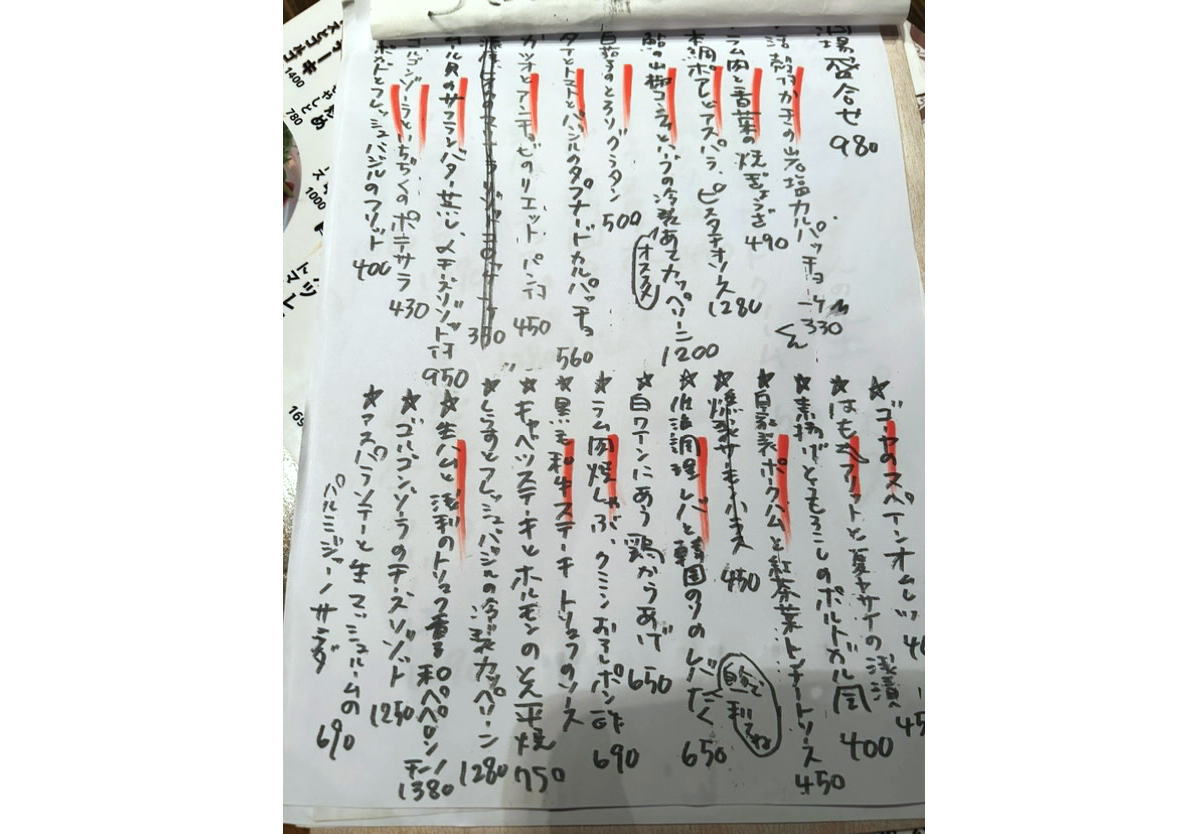 盛合せ 980
殻付かきの岩塩カルパッチョ 一ケ 330
ラム肉と青菜の焼ぎょうざ 490
本鯛ポアレとアスパラ、ピスタチオソース 1280
鮎の山椒コンフィとハーブの冷製あてカッペリーニ 1200
オススメ
白茄子のとろりグラタン 500
タイとトマトとバジルのタプナードカルパッチョ 560
カツオとアンチョビのリエット パン付 450
350
ムール貝のサフランバター蒸し、〆チーズリゾット付 950
ゴルゴンゾーラといちぢくのポテサラ 430
ポテトとフレッシュバジルのフリット 400
★ゴーヤのスペインオムレツ
★はもフリットと夏ヤサイの浅漬
★素揚げとうもろこしのポルトガル風 400
★自家製ポークハムと紅茶葉トンナートソース 450
★燻製サーモンハラス 450
★低温調理レバと韓国のりのレバたく 650
白ワインにあう鶏からあげ 650
★ラム肉焼しゃぶ、クミンおろしポン酢 690
★黒毛和牛ステーキ トリュフのソース
★キャベツステーキとホルモンのとん平焼 750
★しらすとフレッシュバジルの冷製カッペリーニ 1280
★生ハムと浅利のトリュフ香る和ペペロンチーノ 1380
★ゴルゴンゾーラのチーズリゾット 1250
★アスパラソテーと生マッシュルームの
パルミジャーノサラダ 690
1400
780
1000
トマト